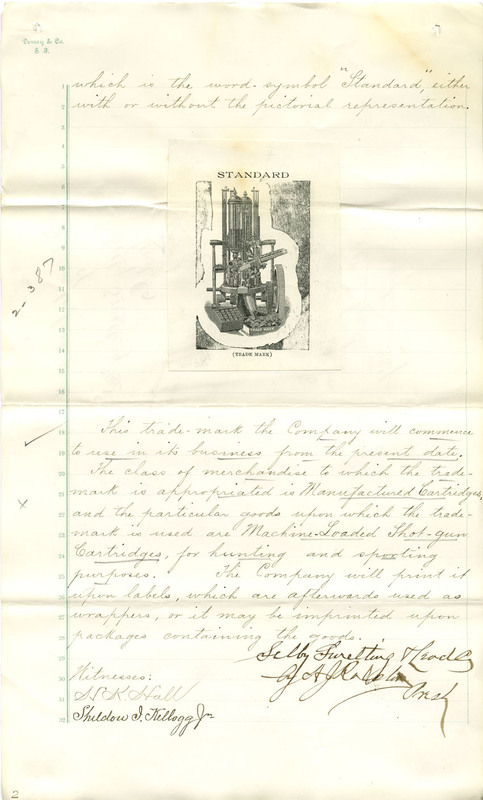 Dewey & Co.
S. F.
which is the word-symbol "Standard," either
with or without the pictorial representation.
STANDARD
TRADE MARK
(TRADE MARK)
2-387
This trade-mark the Company will commence
to use in its business from the present date.
The class of merchandise to which the trade-
mark is appropriated is Manufactured Cartridges,
and the particular goods upon which the trade-
mark is used are Machine-Loaded Shot-gun
Cartridges, for hunting and sporting
purposes. The Company will print it
upon labels, which are afterwards used as
wrappers, or it may be imprinted upon
packages containing the goods.
Selby Smelting & Lead Co
By A J Ralston
Witnesses:
S. K. Hall
Sheldon I. Kellogg Jr
1
2
3
4
5
6
7
8
9
10
11
12
13
14
15
16
17
18
19
20
21
22
23
24
25
26
27
28
29
30
31
32
2